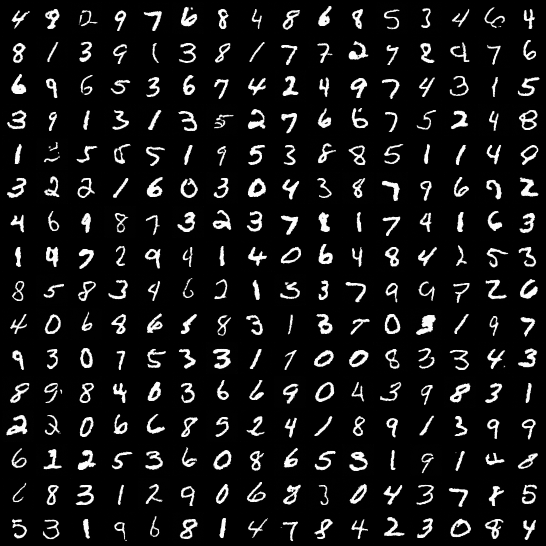 4 8 2 9 7 6 8 4 8 6 8 5 3 4 6 4
8 1 3 9 1 3 8 1 7 7 2 7 8 9 7 6
6 9 6 5 3 6 7 4 2 4 9 7 4 3 1 5
3 9 1 3 1 3 5 2 7 6 6 7 5 2 4 8
1 5 5 1 9 5 3 8 8 5 1 1 4 0
3 2 2 1 6 0 3 0 4 3 8 7 9 6 7 2
4 6 9 8 7 3 2 3 7 8 1 7 4 1 6 3
1 9 7 2 9 4 1 4 0 6 4 8 4 2 5 3
8 5 8 3 4 6 2 1 3 3 7 9 9 7 2 6
4 0 6 8 6 5 8 3 1 3 7 0 3 1 9 7
9 3 0 7 5 3 3 1 7 0 0 8 3 3 4 3
8 9 8 4 0 3 6 6 9 0 4 3 9 8 3 1
2 2 0 6 6 8 5 2 4 1 8 9 1 3 9 9
6 1 2 5 3 6 0 8 6 5 3 1 9 1 4 8
6 8 3 1 2 9 0 6 8 3 0 4 3 7 8 5
5 3 1 9 6 8 1 4 7 8 4 2 3 0 8 4